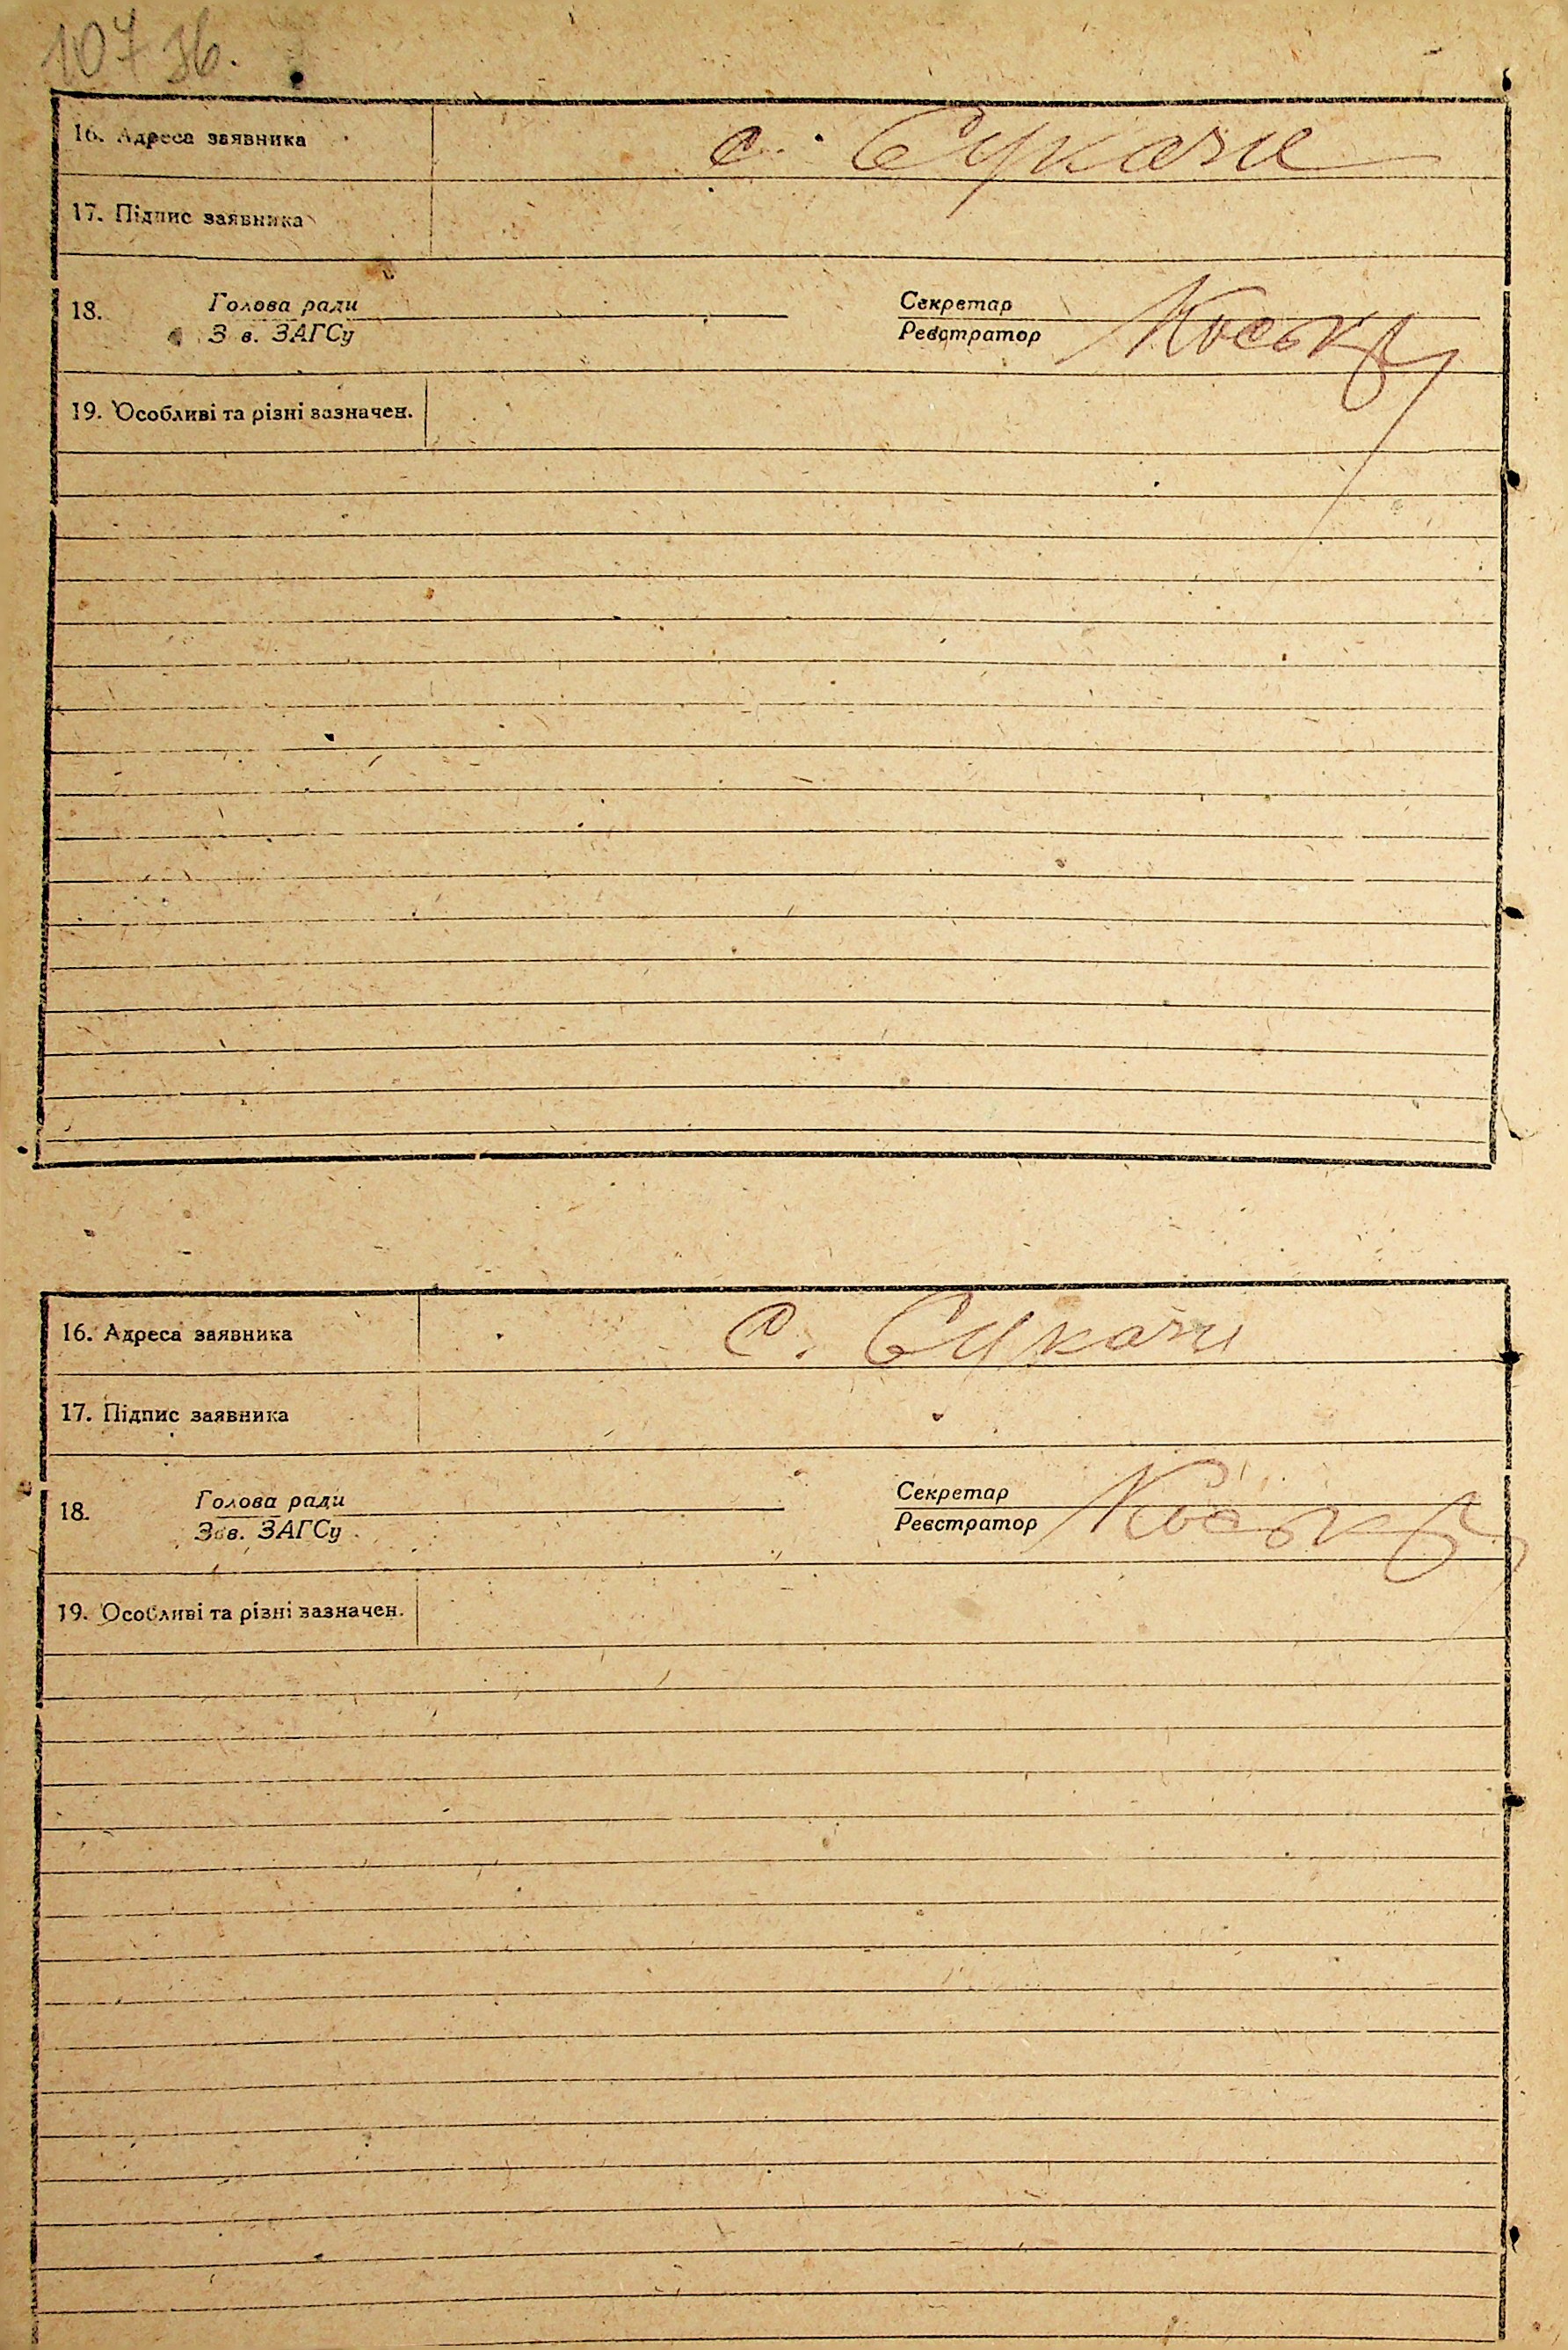 107 зб.
16. Адреса заявника с. Сукачи
17. Підпис заявника
18. Голова ради Секретар
Зав. ЗАГСу Реєстратор
19. Особливі та різні зазначен.
16. Адреса заявника с. Сукачи
17. Підпис заявника
18. Голова ради Секретар
Зав. ЗАГСу Реєстратор
19. Особливі та різні зазначен.